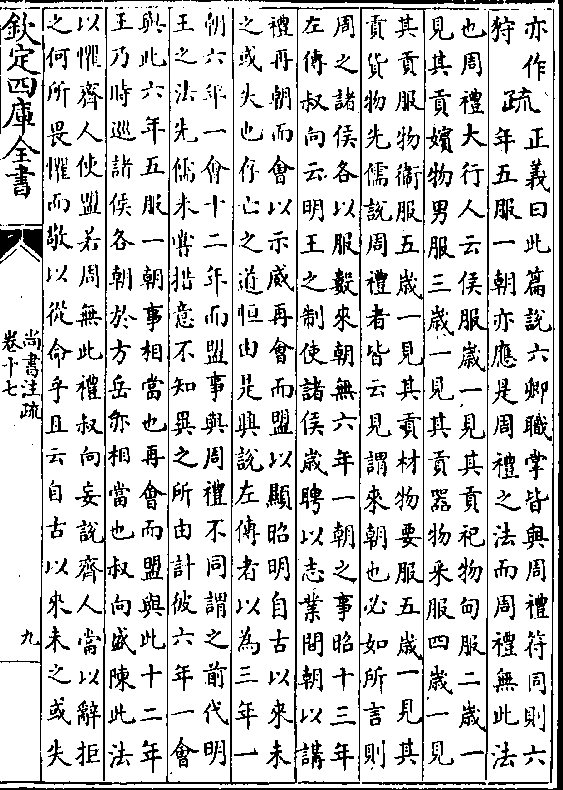 亦作
狩
疏
正義曰此篇說六卿職掌皆與周禮符同則六
年五服一朝亦應是周禮之法而周禮無此法
也周禮大行人云侯服歲一見其貢祀物甸服二歲一
見其貢嬪物男服三歲一見其貢器物采服四歲一見
其貢服物衞服五歲一見其貢材物要服五歲一見其
貢貨物先儒說周禮者皆云見謂來朝也必如所言則
周之諸侯各以服數來朝無六年一朝之事昭十三年
左傳叔向云明王之制使諸侯歲聘以志業間朝以講
禮再朝而會以示威再會而盟以顯昭明自古以來未
之或失也存亡之道恒由是興說左傳者以為三年一
朝六年一會十二年而盟事與周禮不同謂之前代明
王之法先儒未嘗措意不知異之所由計彼六年一會
與此六年五服一朝事相當也再會而盟與此十二年
王乃時巡諸侯各朝於方岳亦相當也叔向盛陳此法
以懼齊人使盟若周無此禮叔向妄說齊人當以辭拒
之何所畏懼而敬以從命乎且云自古以來未之或失
欽定四庫全書
尚書注疏
卷十七
九